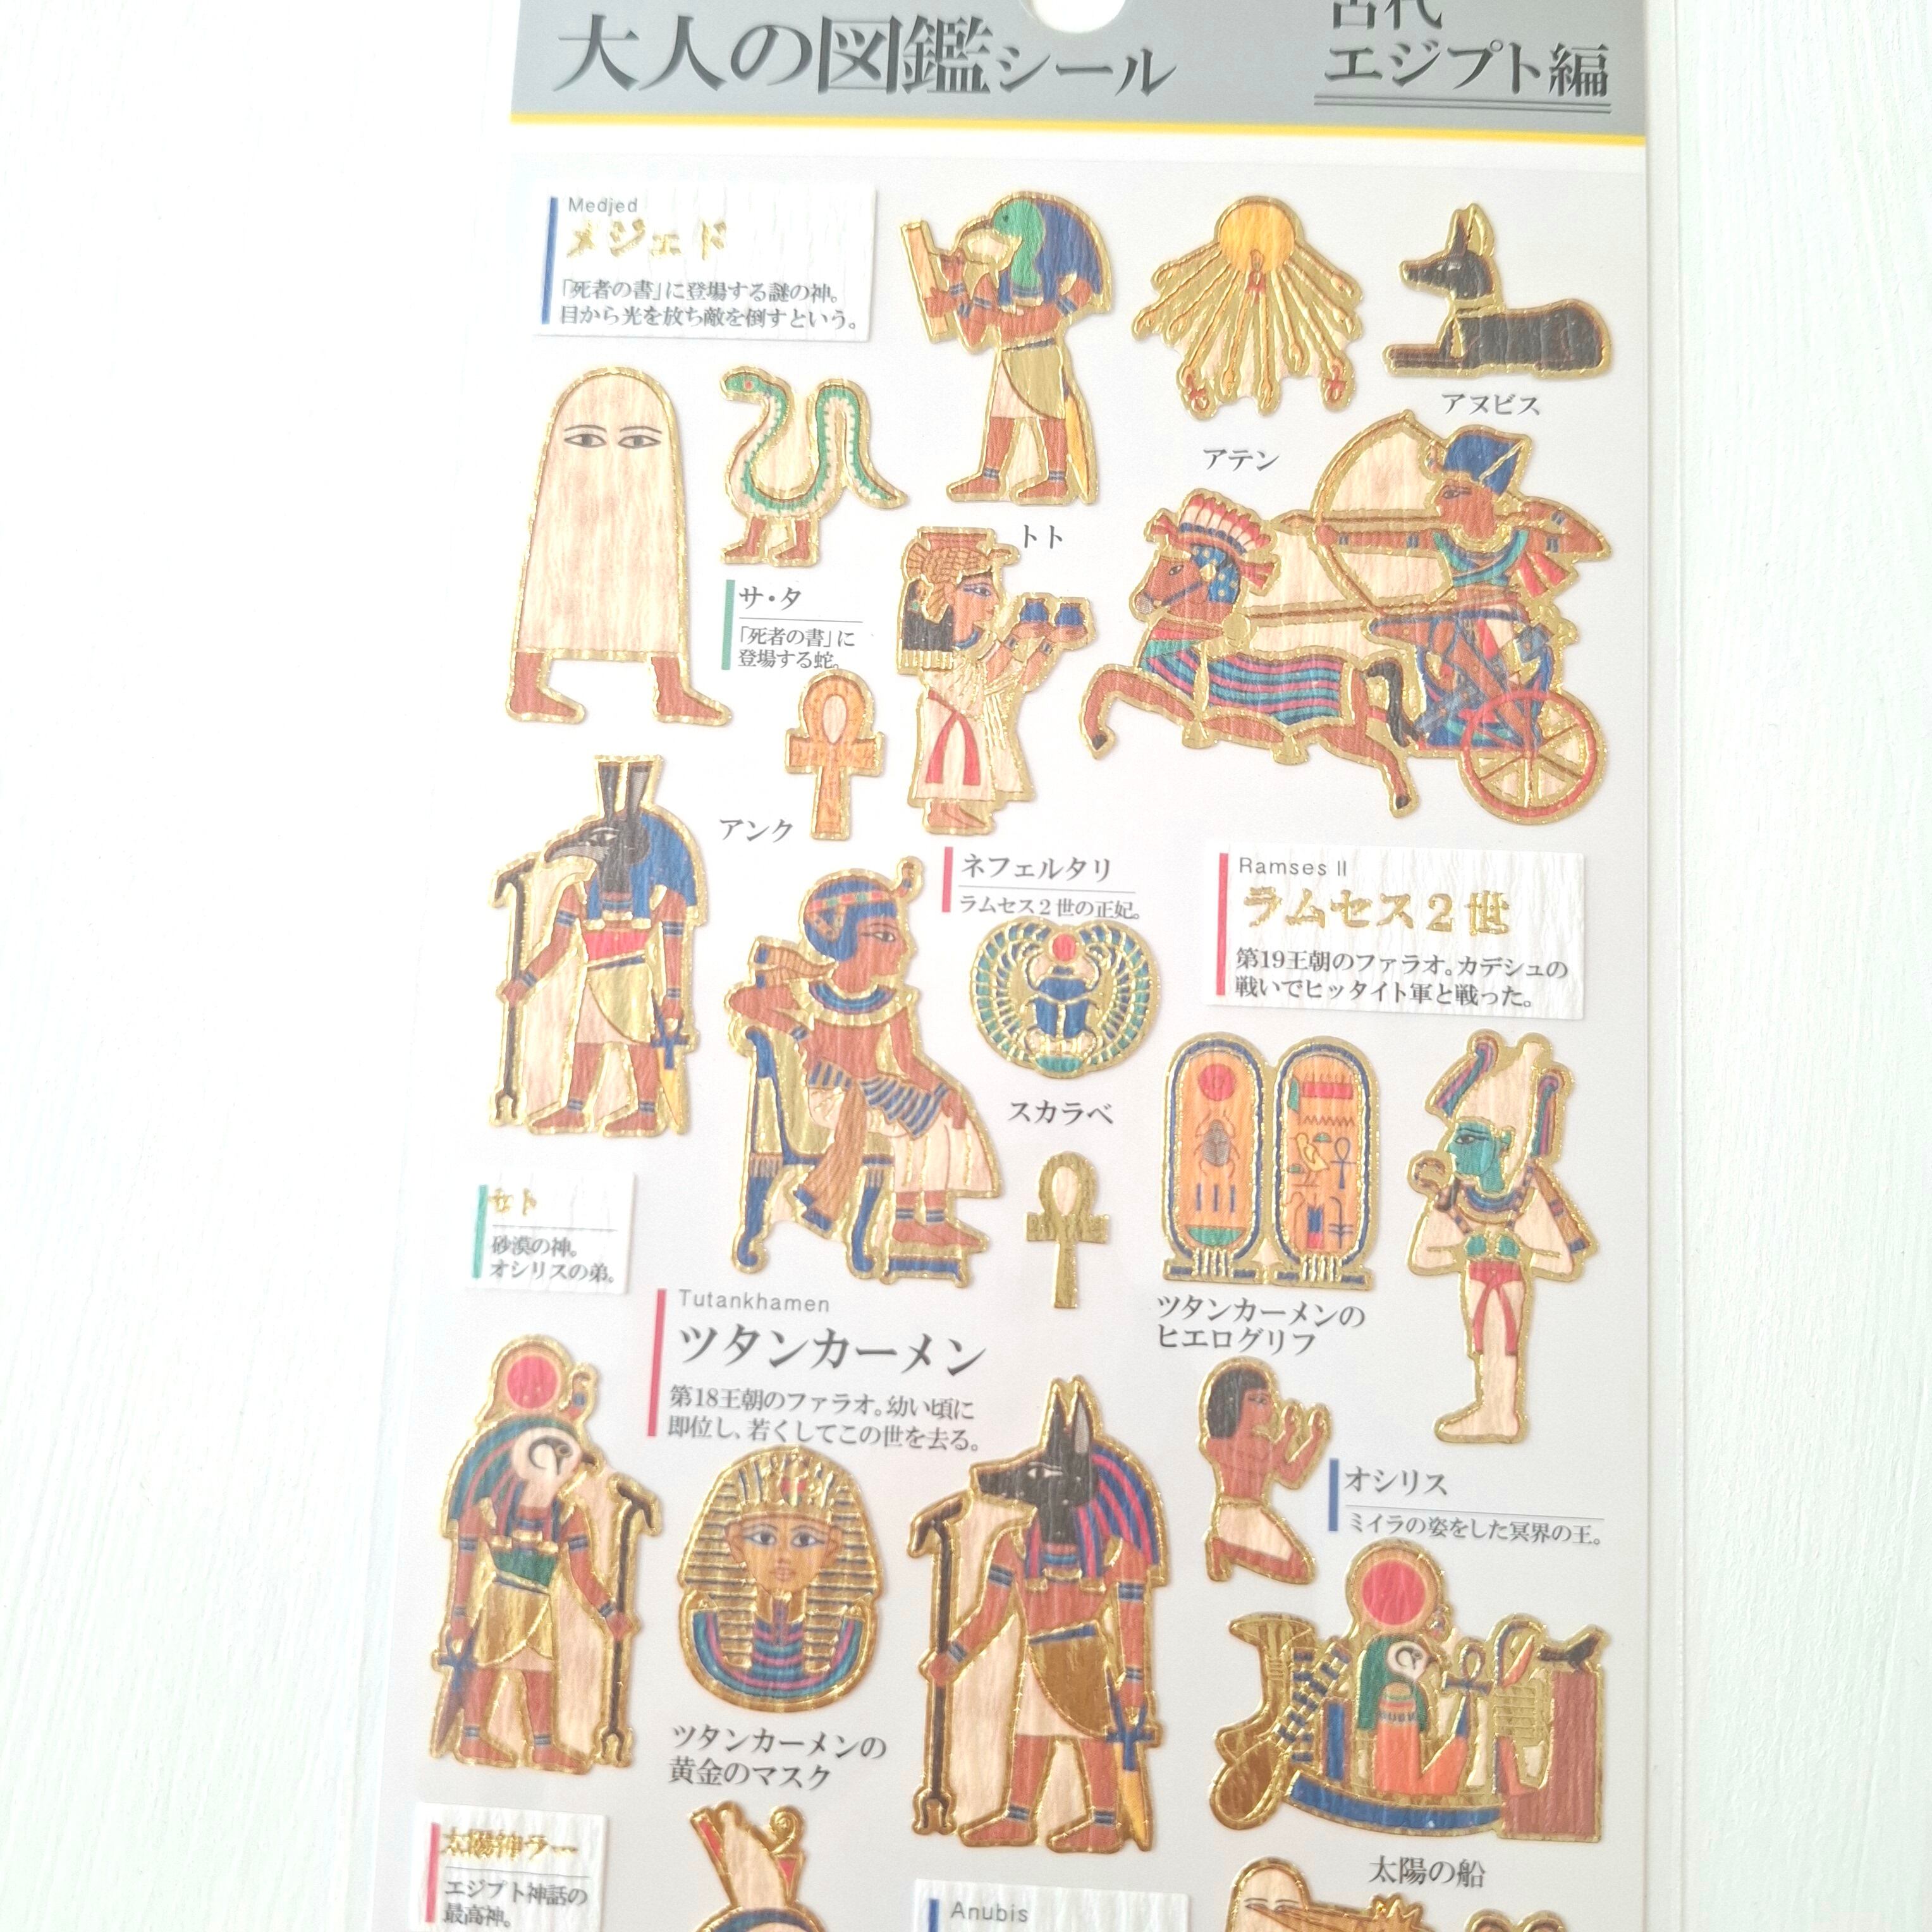 大人の図鑑シール
古代
エジプト編
Medjed
メジェド
「死者の書」に登場する謎の神。
目から光を放ち敵を倒すという。
アヌビス
アテン
トト
サ・タ
「死者の書」に
登場する蛇。
アンク
ネフェルタリ
ラムセス2世の正妃。
Ramses II
ラムセス2世
第19王朝のファラオ。カデシュの
戦いでヒッタイト軍と戦った。
スカラベ
セト
砂漠の神。
オシリスの弟。
Tutankhamen
ツタンカーメン
第18王朝のファラオ。幼い頃に
即位し、若くしてこの世を去る。
ツタンカーメンの
ヒエログリフ
オシリス
ミイラの姿をした冥界の王。
ツタンカーメンの
黄金のマスク
太陽の船
太陽神ラー
エジプト神話の
最高神。
Anubis